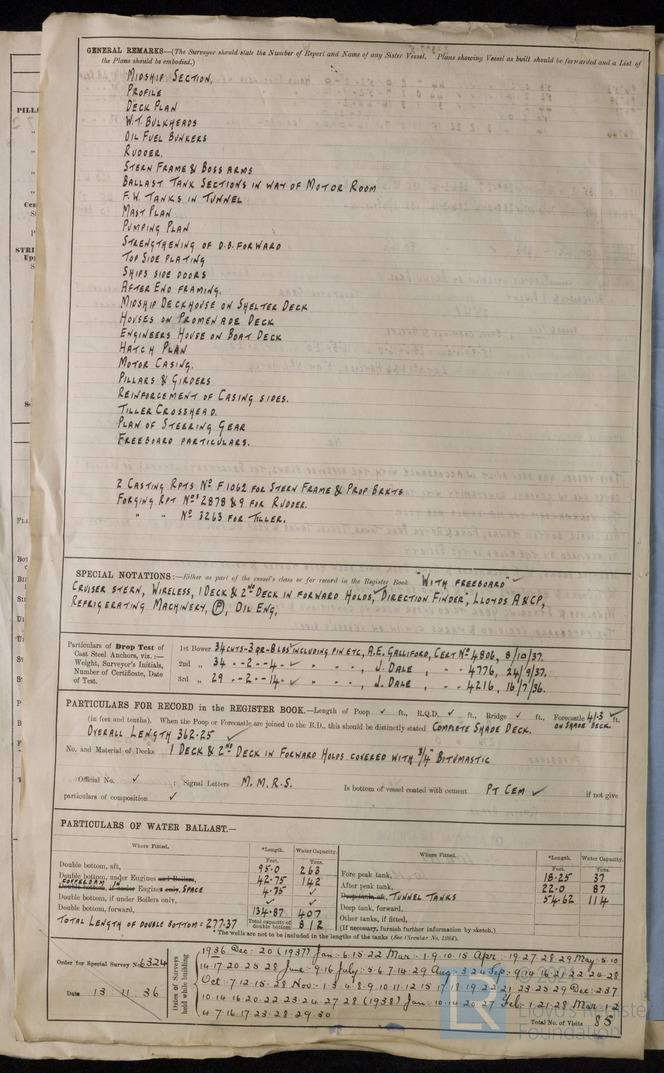 GENERAL REMARKS—(The Surveyor should state the Number of Report and Name of any Sister Vessel. Plans showing Vessel as built should be forwarded and a List of
the Plans should be embodied.)
MIDSHIP SECTION.
PROFILE
DECK PLAN
W.T. BULKHEADS
OIL FUEL BUNKERS
RUDDER.
STERN FRAME & BOSS ARMS
BALLAST TANK SECTIONS IN WAY OF MOTOR ROOM
F.W. TANKS IN TUNNEL
MAST PLAN
PUMPING PLAN
STRENGTHENING OF D.B. FORWARD
TOP SIDE PLATING
SHIPS SIDE DOORS
AFTER END FRAMING.
MIDSHIP DECKHOUSE ON SHELTER DECK
HOUSES ON PROMENADE DECK
ENGINEERS HOUSE ON BOAT DECK
HATCH PLAN
MOTOR CASING.
PILLARS & GIRDERS
REINFORCEMENT OF CASING SIDES.
TILLER CROSSHEAD.
PLAN OF STEERING GEAR
FREEBOARD PARTICULARS.
2 CASTING RPTS Nº F1062 FOR STERN FRAME & PROP BRKTS
FORGING RPT Nºs 2878 & 9 FOR RUDDER.
" " Nº 3263 FOR TILLER.
SPECIAL NOTATIONS:—Either as part of the vessel's class or for record in the Register Book "WITH FREEBOARD" ✓
CRUISER STERN, WIRELESS, 1 DECK & 2ND DECK IN FORWARD HOLDS, DIRECTION FINDER, LLOYDS A&CP,
REFRIGERATING MACHINERY, Ⓟ, OIL ENG,
Particulars of Drop Test of
Cast Steel Anchors, viz.:—
Weight, Surveyor's Initials,
Number of Certificate, Date
of Test.
1st Bower 34 CWTS-3 QR-8 LBS INCLUDING PIN ETC, A.E. GALLIFORD, CERT Nº 4806, 8/10/37.
2nd " 34 - - 2 - - 4 - ✓ " - - , J. DALE , - - 4776, 24/9/37.
3rd " 29 - - 2 - - 14 - ✓ " - - , J. DALE , - - 4216, 16/7/36.
PARTICULARS FOR RECORD in the REGISTER BOOK.—Length of Poop ✓ ft., R.Q.D. ✓ ft., Bridge ✓ ft., Forecastle 41.3 ft.
(in feet and tenths). When the Poop or Forecastle are joined to the B.D., this should be distinctly stated COMPLETE SHADE DECK. ON SHADE DECK.
OVERALL LENGTH 362.25 ✓
No. and Material of Decks 1 DECK & 2ND DECK IN FORWARD HOLDS COVERED WITH 3/4" BITUMASTIC
Official No. ✓ ; Signal Letters M.M.R.S. Is bottom of vessel coated with cement PT CEM ✓ if not give
particulars of composition ✓
PARTICULARS OF WATER BALLAST.—
Where Fitted. *Length. Water Capacity. Where Fitted. *Length. Water Capacity.
Feet. Tons. Feet. Tons.
Double bottom, aft, 95.0 263 Fore peak tank, 18.25 37
Double bottom, under Engines and Boilers, 42.75 142 After peak tank, 22.0 87
COFFERDAM IN Engines only, SPACE 4.75 ✓ Deep tank, aft, TUNNEL TANKS 54.62 114
Double bottom, if under Boilers only, ✓ ✓ Deep tank, forward,
Double bottom, forward, 134.87 407 Other tanks, if fitted,
TOTAL LENGTH OF DOUBLE BOTTOM = 277.37 Total capacity of double bottom 812 (If necessary, furnish further information by sketch.)
* The wells are not to be included in the lengths of the tanks (See Circular No. 1284).
Order for Special Survey No. 6324
Date 13.11.36
Dates of Surveys held while building
1936 Dec. 20 (1937) Jan. 6.15.22 Mar. 1.9.10.15 Apr. 19.27.28.29 May. 5.10
14.17.20.25.28 June. 9.16 July. 5.6.7.14.29 Aug. 3.24 Sep. 9.14.16.21.22.24.28
Oct. 7.12.15.28 Nov. 1.3.4.8.9.10.11.12.15.17.18.19.22.21.23.25.29 Dec. 2.3.7
10.14.16.20.22.23.24.27.28 (1938) Jan. 10.14.20.27 Feb. 1.21.28 Mar. 1.2
4.7.16.17.23.28.29.30
Total No. of Visits 85
© 2021
Lloyd's Register
Foundation